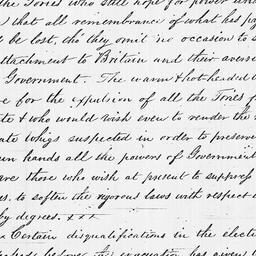 the Tories who still hope for power und
that all remembrance of what has pa
be lost, tho' they omit no occasion to s
attachment to Britain and their avers
Government. The warm & hot headed w
e for the expulsion of all the Tories f
te & who would wish even to render the
ate whigs suspected in order to preserve
wn hands all the powers of Government
are those who wish at present to suppress
us, to soften the rigorous laws with respect
by degrees. x x x
x Certain disqualifications in the electi
evacuation has given